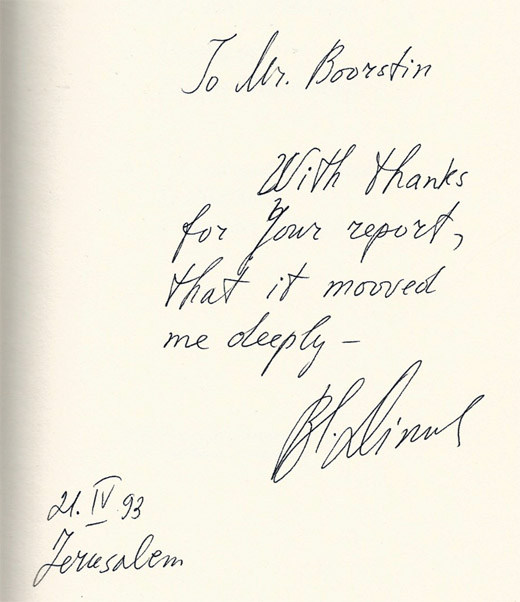 To Mr. Boorstin
With thanks
for Your report,
that it mooved
me deeply –
21. IV 93
Jerusalem